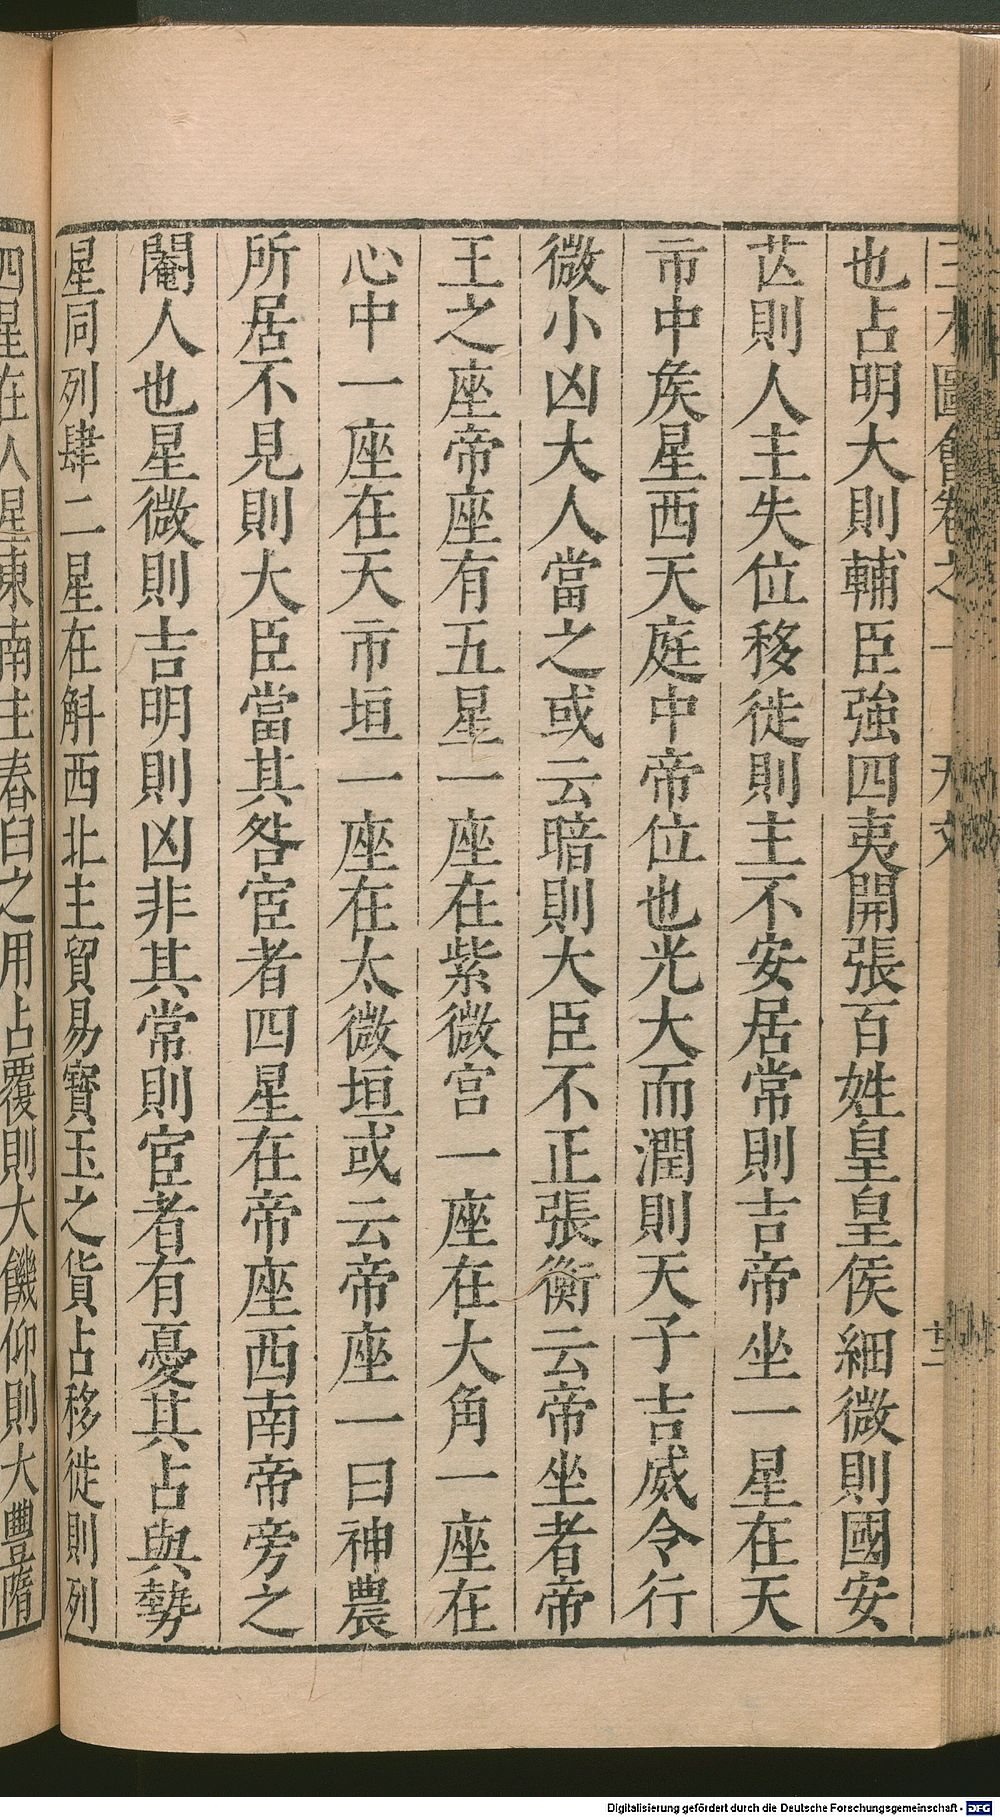 三才圖會卷之一 天文
也占明大則輔臣強四夷開張百姓皇皇侯細微則國安
芒則人主失位移徙則主不安居常則吉帝坐一星在天
市中矦星西天庭中帝位也光大而潤則天子吉威令行
微小凶大人當之或云暗則大臣不正張衡云帝坐者帝
王之座帝座有五星一座在紫微宮一座在大角一座在
心中一座在天市垣一座在太微垣或云帝座一曰神農
所居不見則大臣當其咎宦者四星在帝座西南帝旁之
閹人也星微則吉明則凶非其常則宦者有憂其占與勢
星同列肆二星在斛西北主貿易寶玉之貨占移徙則列
四星在人星東南主春臼之用占覆則大饑仰則大豐隋
Digitalisierung gefördert durch die Deutsche Forschungsgemeinschaft - DFG